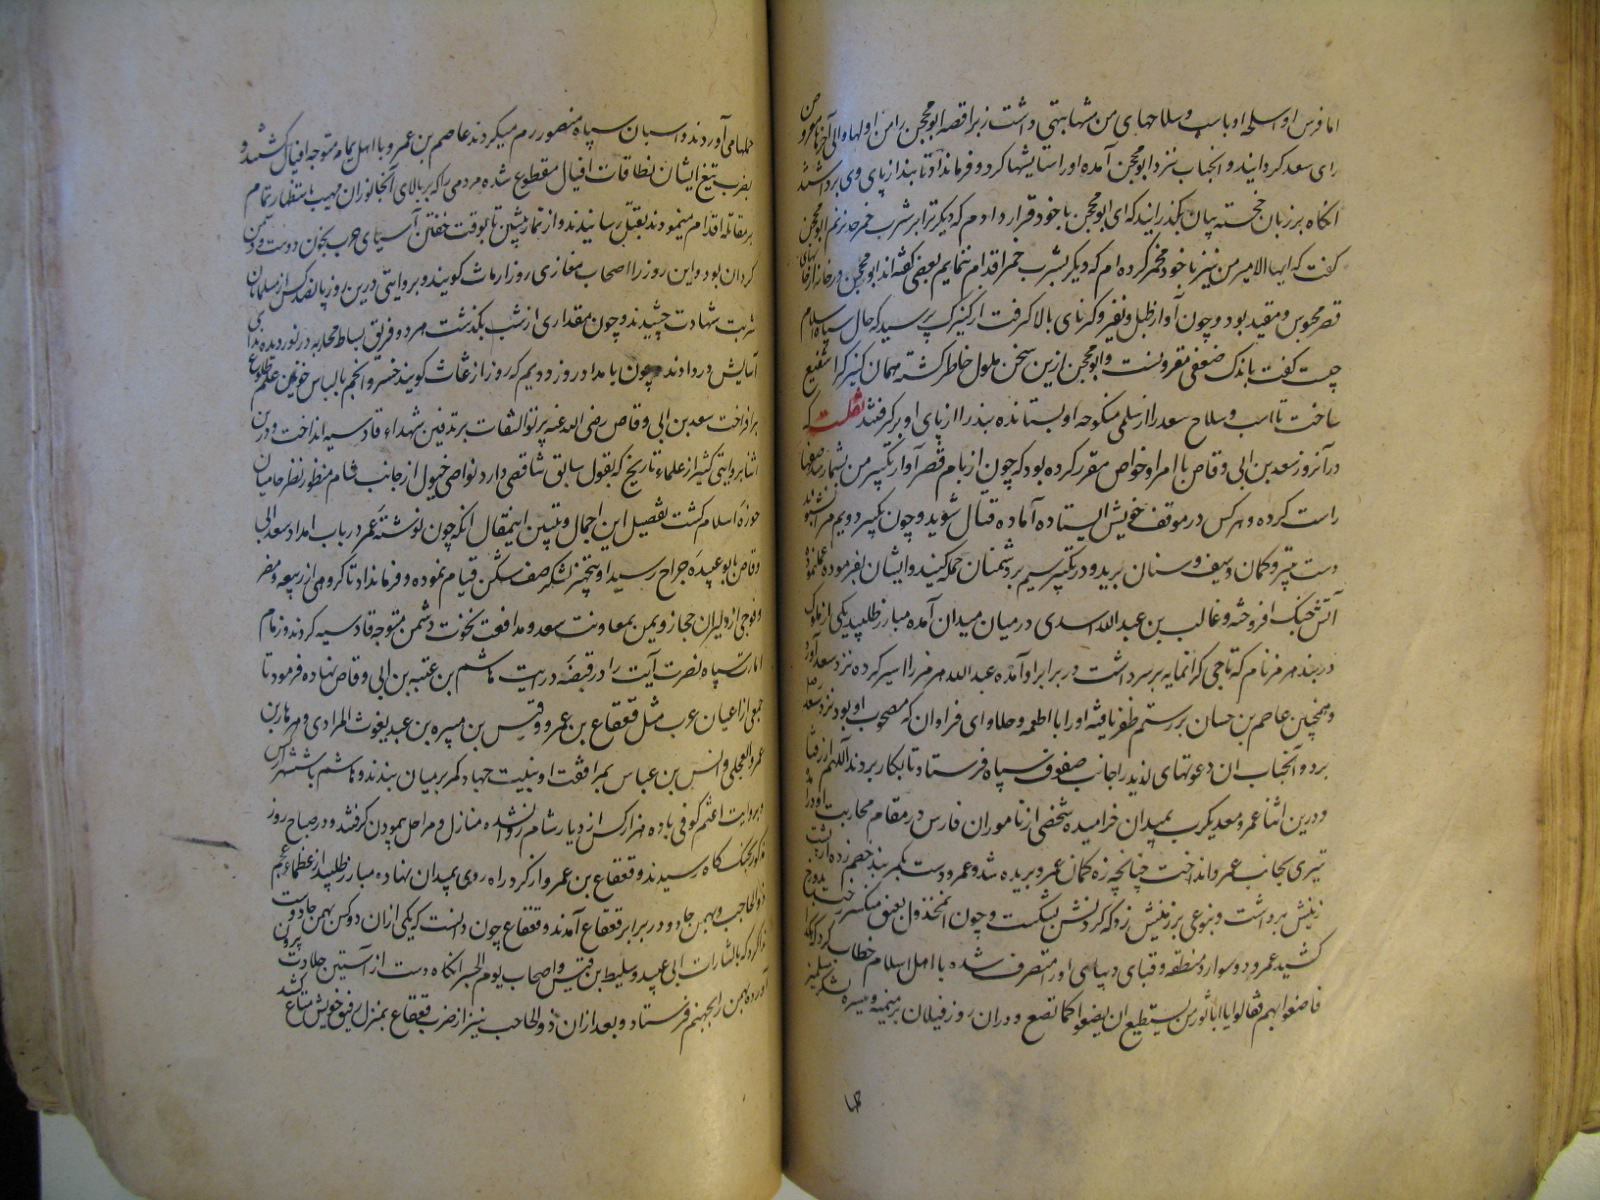 اما فرس او اسلحه او باسب و سلاحهای من مشابهتی داشت زبرا قصه ابو محجن را من اولها والی آخرها معروض
رای سعد کردانیدند و انجناب نزد ابو محجن آمده او را ستایشها کرد و فرمان داد تا بند از پای وی برداشتند
انکاه بر زبان خجسته بیان بکذرانید که ای ابو محجن با خود قرار دادم که دیکر ترا بر شرب خمر حد نزنم ابو محجن
کفت که ایها الامیر من نیز با خود مخمر کرده ام که دیکر بشرب خمر اقدام ننمایم بعضی کفته اند ابو محجن در خانه از خانهای
قصر محبوس و مقید بود و چون آواز طبل و نفیر و کرنای بالا کرفت از کنیزک پرسید که حال سپاه اسلام
چیست کفت باندک ضعفی مقرونست و ابو محجن ازین سخن ملول خاطر کشته همان کنیزک را شفیع
ساخت تا اسب و سلاح سعد را از سلمی منکوحه او بستانده بند را از پای او بر کرفتند نقلست که
در آنروز سعد بن ابی وقاص با امرا و خواص مقرر کرده بود که چون از بام قصر آواز تکبیر من بشما رسد صفها
راست کرده و هر کس در موقف خویش ایستاده آماده قتال شوید و چون تکبیر دویم مرا بشنوید
دست بتیر و کمان و سیف و سنان برید و در تکبیر سیم بر دشمنان حمله کنید و ایشان بفرموده عمل نموده
آتش جنک افروخته و غالب بن عبد الله اسدی در میان میدان آمده مبارز طلبید یکی از ملوک
دربند هرمز نام که تاجی کرانمایه بر سر داشت در برابر او آمده عبد الله هرمز را اسیر کرده نزد سعد آورد
و همچنین عاصم بن حسان برستم ظفر یافته او را با اطعمه و حلاوای فراوان که مصحوب او بود نزد سعد
برد و آنجناب ان دعوتهای لذیذ را جانب صفوف سپاه فرستاد تا بکار بردند
و درین اثنا عمرو معدیکرب بمیدان خرامیده شخصی از ناموران فارس در مقام محاربت او در آمده
تیری بجانب عمرو انداخت چنانچه زه کمان عمرو بریده شد و عمرو دست بکمر بند خصم زده از پشت
زینش برداشت و بنوعی بر زمینش زد که کردنش بشکست و چون انمخذول بعنق منکسر رخت بدوزخ
کشید عمرو دو سوار و منطقه و قبای دیبای او را متصرف شده با اهل اسلام خطاب کرد که هکذا
فاصنعوا بهم فقالوا یا ابا ثور من یستطیع ان یصنع کما تصنع و دران روز فیلان بر میمنه و میسره لشکر اسلام
حملها می آوردند و اسبان سپاه منصور رم میکردند عاصم بن عمرو با اهل یمامه متوجه افیال کشتند و
بضرب تیغ ایشان نطاقات افیال مقطوع شده مردمی را که بر بالای آنجانوران مهیب باستظهار تمام
بر مقاتله اقدام مینمودند بقتل رسانیدند و از نماز پیشین تا بوقت خفتن آسیای حرب بخون دوست و دشمن
کردان بود و این روز را اصحاب مغازی روز ارماث کویند و بروایتی درین روز پانصد کس از مسلمانان
شربت شهادت چشیدند و چون مقداری از شب بکذشت هر دو فریق بساط محاربه در نوردیده ندای
آسایش در دادند چون بامداد روز دویم که روز اغاث کویند خسرو انجم بالباس خونین علم طلوع
برافراخت سعد بن ابی وقاص رضی الله عنه پرتو التفات بر تدفین شهداء قادسیه انداخت و درین
اثنا بروایتی کثیر از علماء تاریخ که بقول سابق تناقض دارد نواصی خیول از جانب شام منظور نظر حامیان
حوزه اسلام کشت تفصیل این اجمال و تبیین اینمقال انکه چون نوشته عمر در باب امداد سعد ابی
وقاص بابو عبیده جراح رسید او بتجهیز لشکر صف شکن قیام نموده و فرمان داد تا کروهی از ربیعه و مضر
و فوجی از دلیران حجاز و یمن بمعاونت سعد و مدافعت نخوت دشمن متوجه قادسیه کردند و زمام
امارت سپاه نصرت آیت را در قبضه درایت هاشم بن عتبه بن ابی وقاص نهاده فرمود تا
جمعی از اعیان عرب مثل قعقاع بن عمرو و قیس بن هبیره بن عبد یغوث المرادی و هزهاز بن
عمرو العجلی و انس بن عباس بمرافقت او بنیت جهاد کمر بر میان بندند و هاشم با شش هزار کس
و بروایت اعثم کوفی با ده هزار کس از دیار شام روان شده منازل و مراحل بپیمودن کرفتند و در صباح روز
مذکور بجنککاه رسیدند و قعقاع بن عمرو از کرد راه روی بمیدان نهاده مبارز طلبید از عظماء عجم
ذو الحاجب و بهمن جادو در برابر قعقاع آمدند و قعقاع چون دانست که یکی از ان دو کس بهمن جادوست
ندا کرد که یا لثارات ابی عبید و سلیط بن قیس و اصحاب یوم الجسر انکاه دست از آستین جلادت بیرون
آورده بهمن را بجهنم فرستاد و بعد ازان ذو الحاجب نیز از ضرب قعقاع بمنزل رفیق خویش متاع کشید